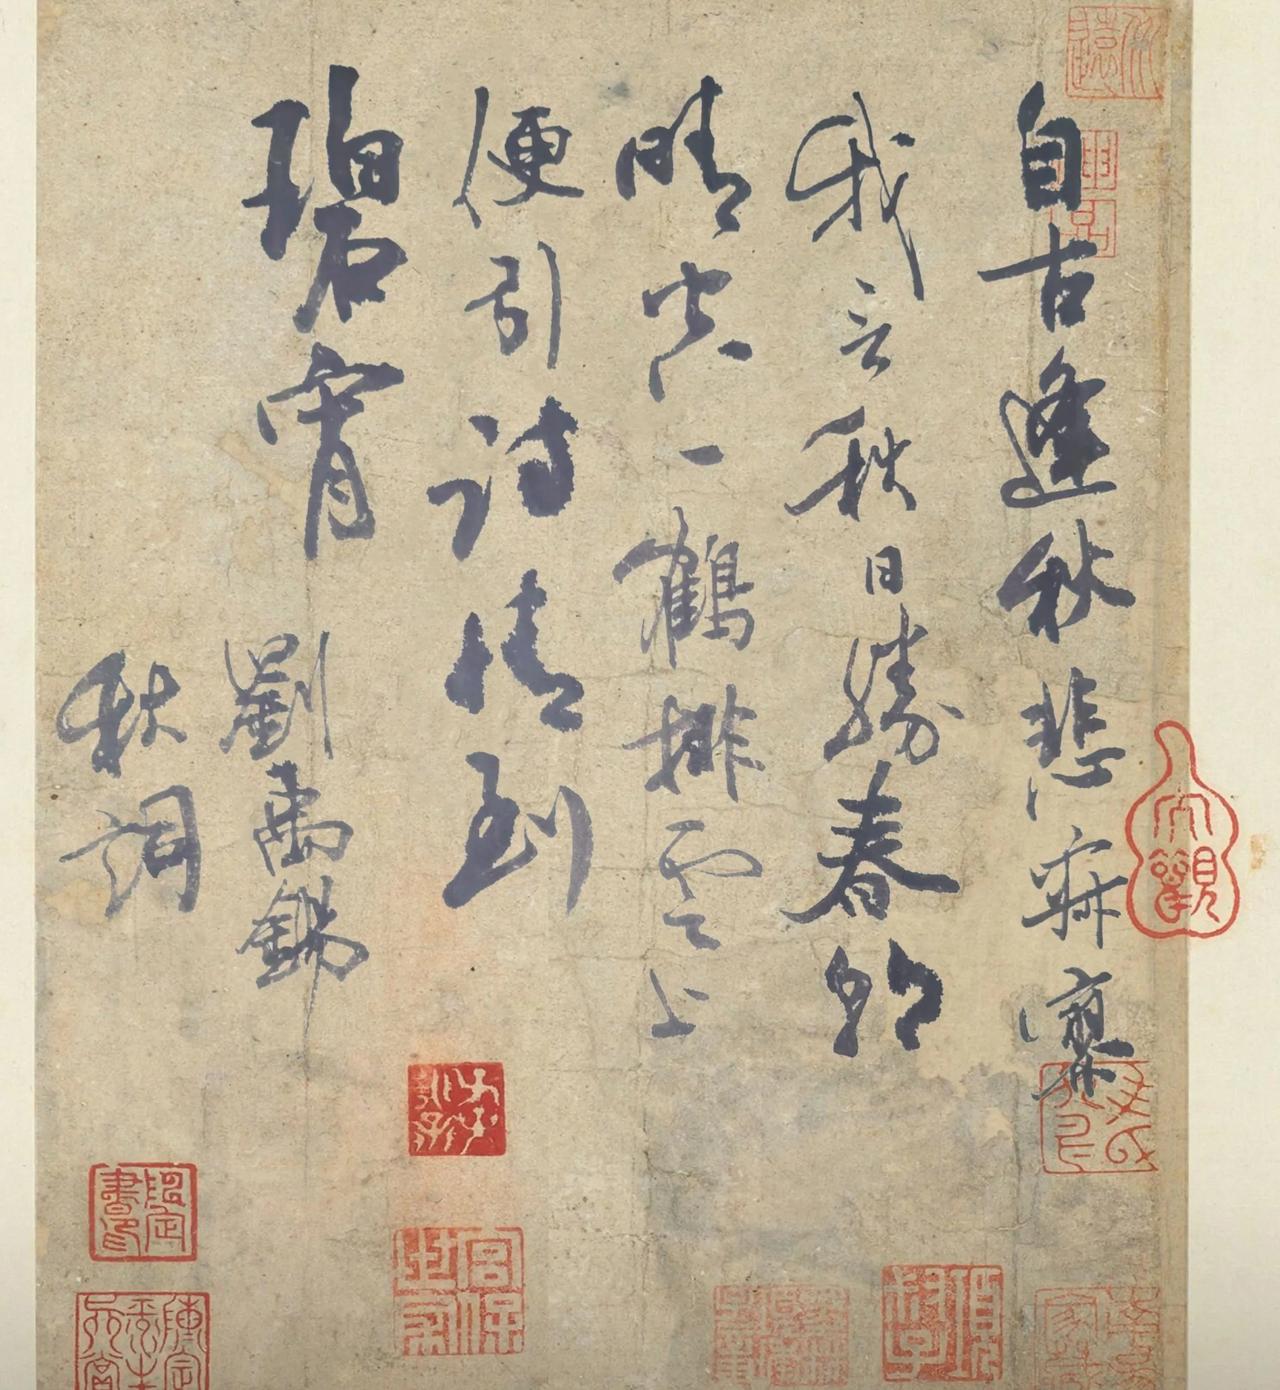 自古逢秋悲寂寥
我言秋日勝春朝
晴空一鶴排雲上
便引詩情到
碧宵
劉禹錫
秋詞
大觀
宮保世家